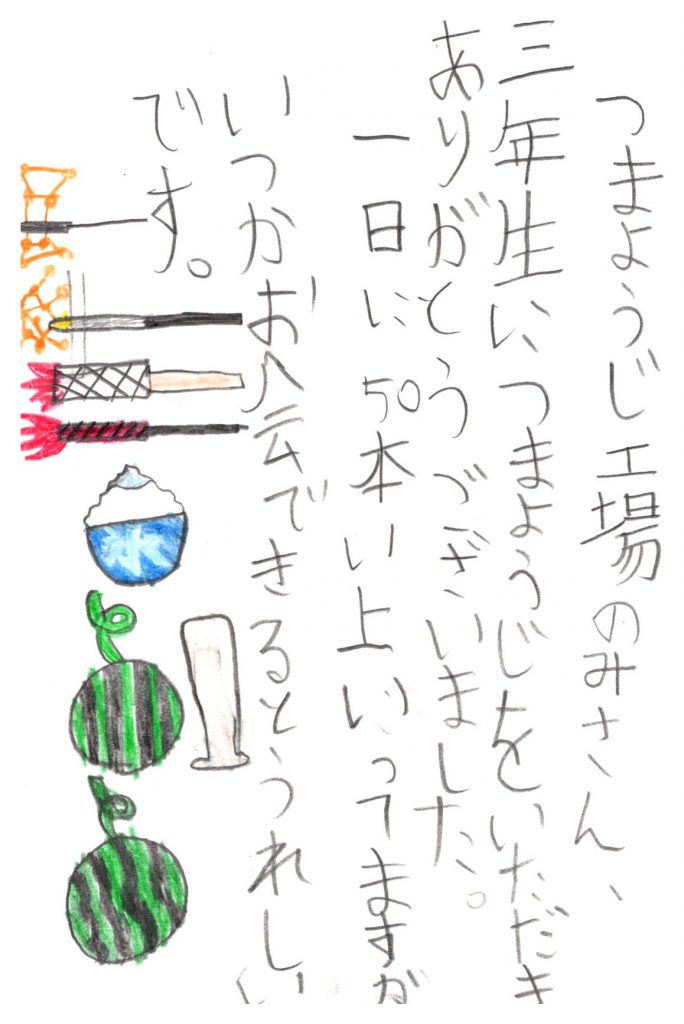 つまようじ工場のみさん、
三年生につまようじをいただき
ありがとうございました。
一日に50本い上いってますが
いつかお会できるとうれしい
です。
氷